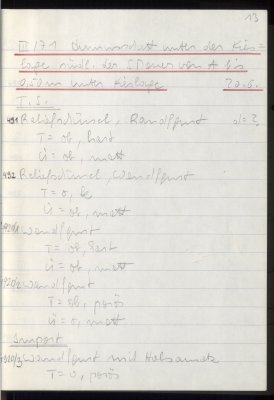 13
III/71 Humusschicht unter der Kies=
lage südl. der Mauer von A bis
0,50 m unter Kieslage 20.6.
T.S.
491 Reliefschüssel, Randfrgmt d=?
T = ob, hart
Ü = ob, matt
492 Reliefschüssel, Wandfrgmt
T = o,
Ü = ob, matt
Wandfrgmt
T = ob, hart
Ü = ob, matt
Wandfrgmt
T = ob, porös
Ü = o, matt
Import
Wandfrgmt mit Halsansatz
T = o, porös